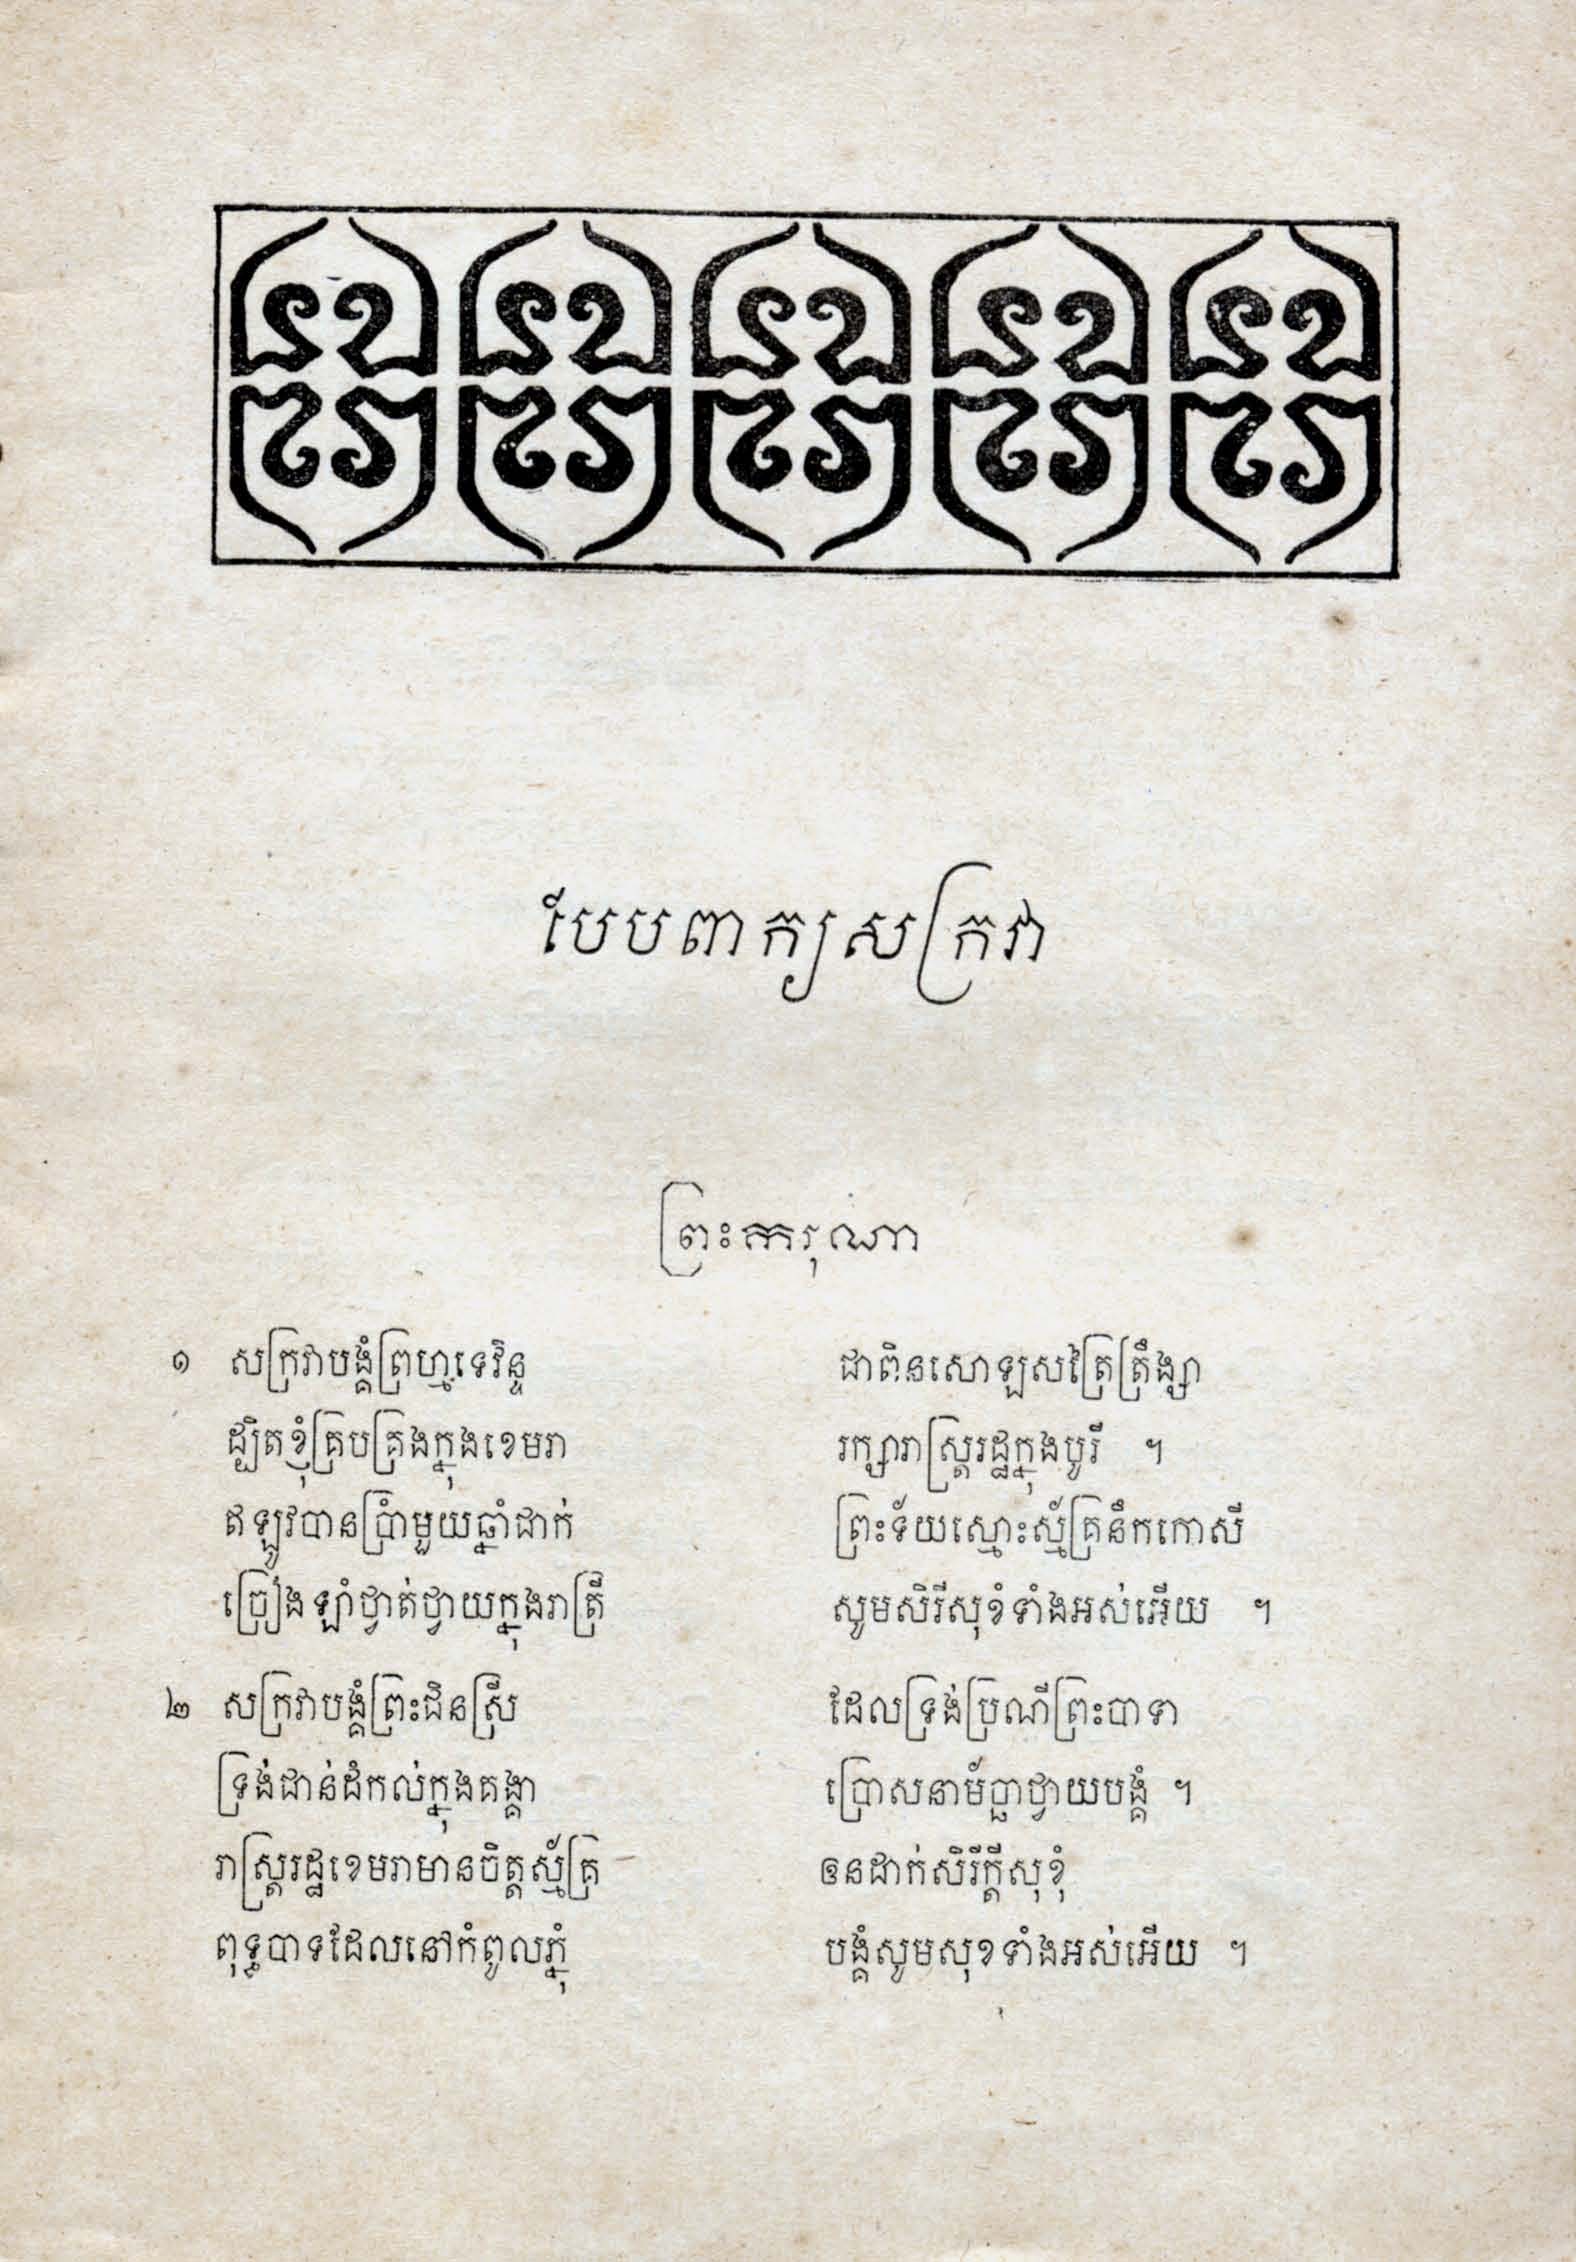 បែបពាក្យសក្រវា
ព្រះករុណា
១ សក្រវាបង្គំព្រហ្មទេវិន្ទ ជាពិនសោឡសត្រៃត្រឹង្សា
ដ្បិតខ្ញុំគ្របគ្រងក្នុងខេមរា រក្សារាស្ត្ររដ្ឋក្នុងបូរី ។
ឥឡូវបានប្រាំមួយឆ្នាំជាក់ ព្រះទ័យស្មោះស្ម័គ្រនឹកកោសី
ច្រៀងឡាំថ្វាត់ថ្វាយក្នុងរាត្រី សូមសិរីសុខំទាំងអស់អើយ ។
២ សក្រវាបង្គំព្រះជិនស្រី ដែលទ្រង់ប្រណីព្រះបាទា
ទ្រង់ជាន់ដំកល់ក្នុងគង្គា ប្រោសនាម័ប្ឆាថ្វាយបង្គំ ។
រាស្ត្ររដ្ឋខេមរាមានចិត្តស្ម័គ្រ ឲនដាក់សិរីក្តីសុខុំ
ពុទ្ធបាទដែលនៅកំពូលភ្នុំ បង្គំសូមសុខទាំងអស់អើយ ។